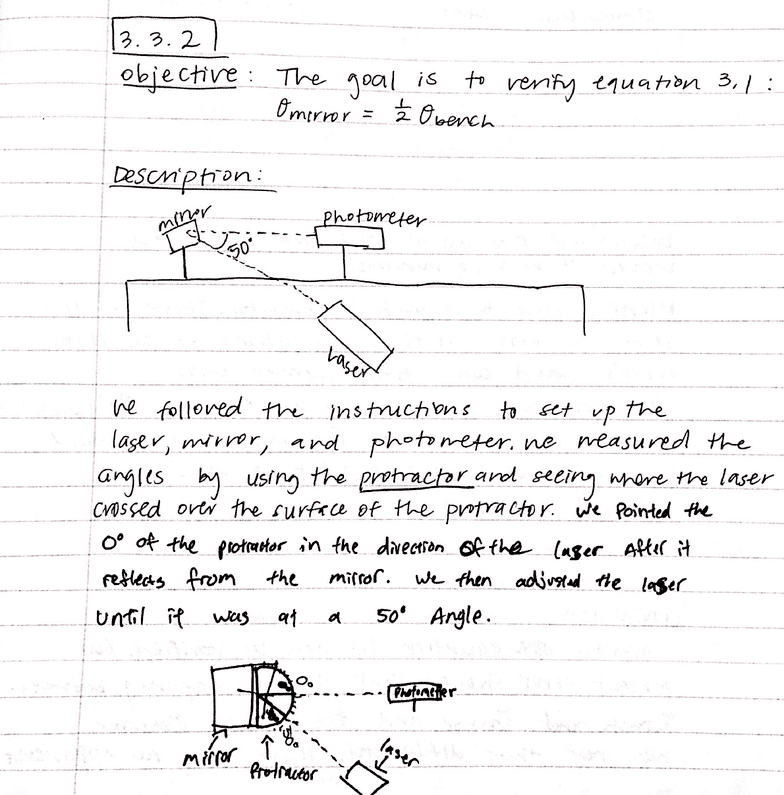 3.3.2
objective: The goal is to verify equation 3.1:
θmirror = 1/2 θbench
Description:
mirror
photometer
50°
Laser
we followed the instructions to set up the
laser, mirror, and photometer. we measured the
angles by using the protractor and seeing where the laser
crossed over the surface of the protractor. we pointed the
0° of the protractor in the direction of the laser After it
reflects from the mirror. we then adjusted the laser
until it was at a 50° Angle.
0°
photometer
mirror
Protractor
laser